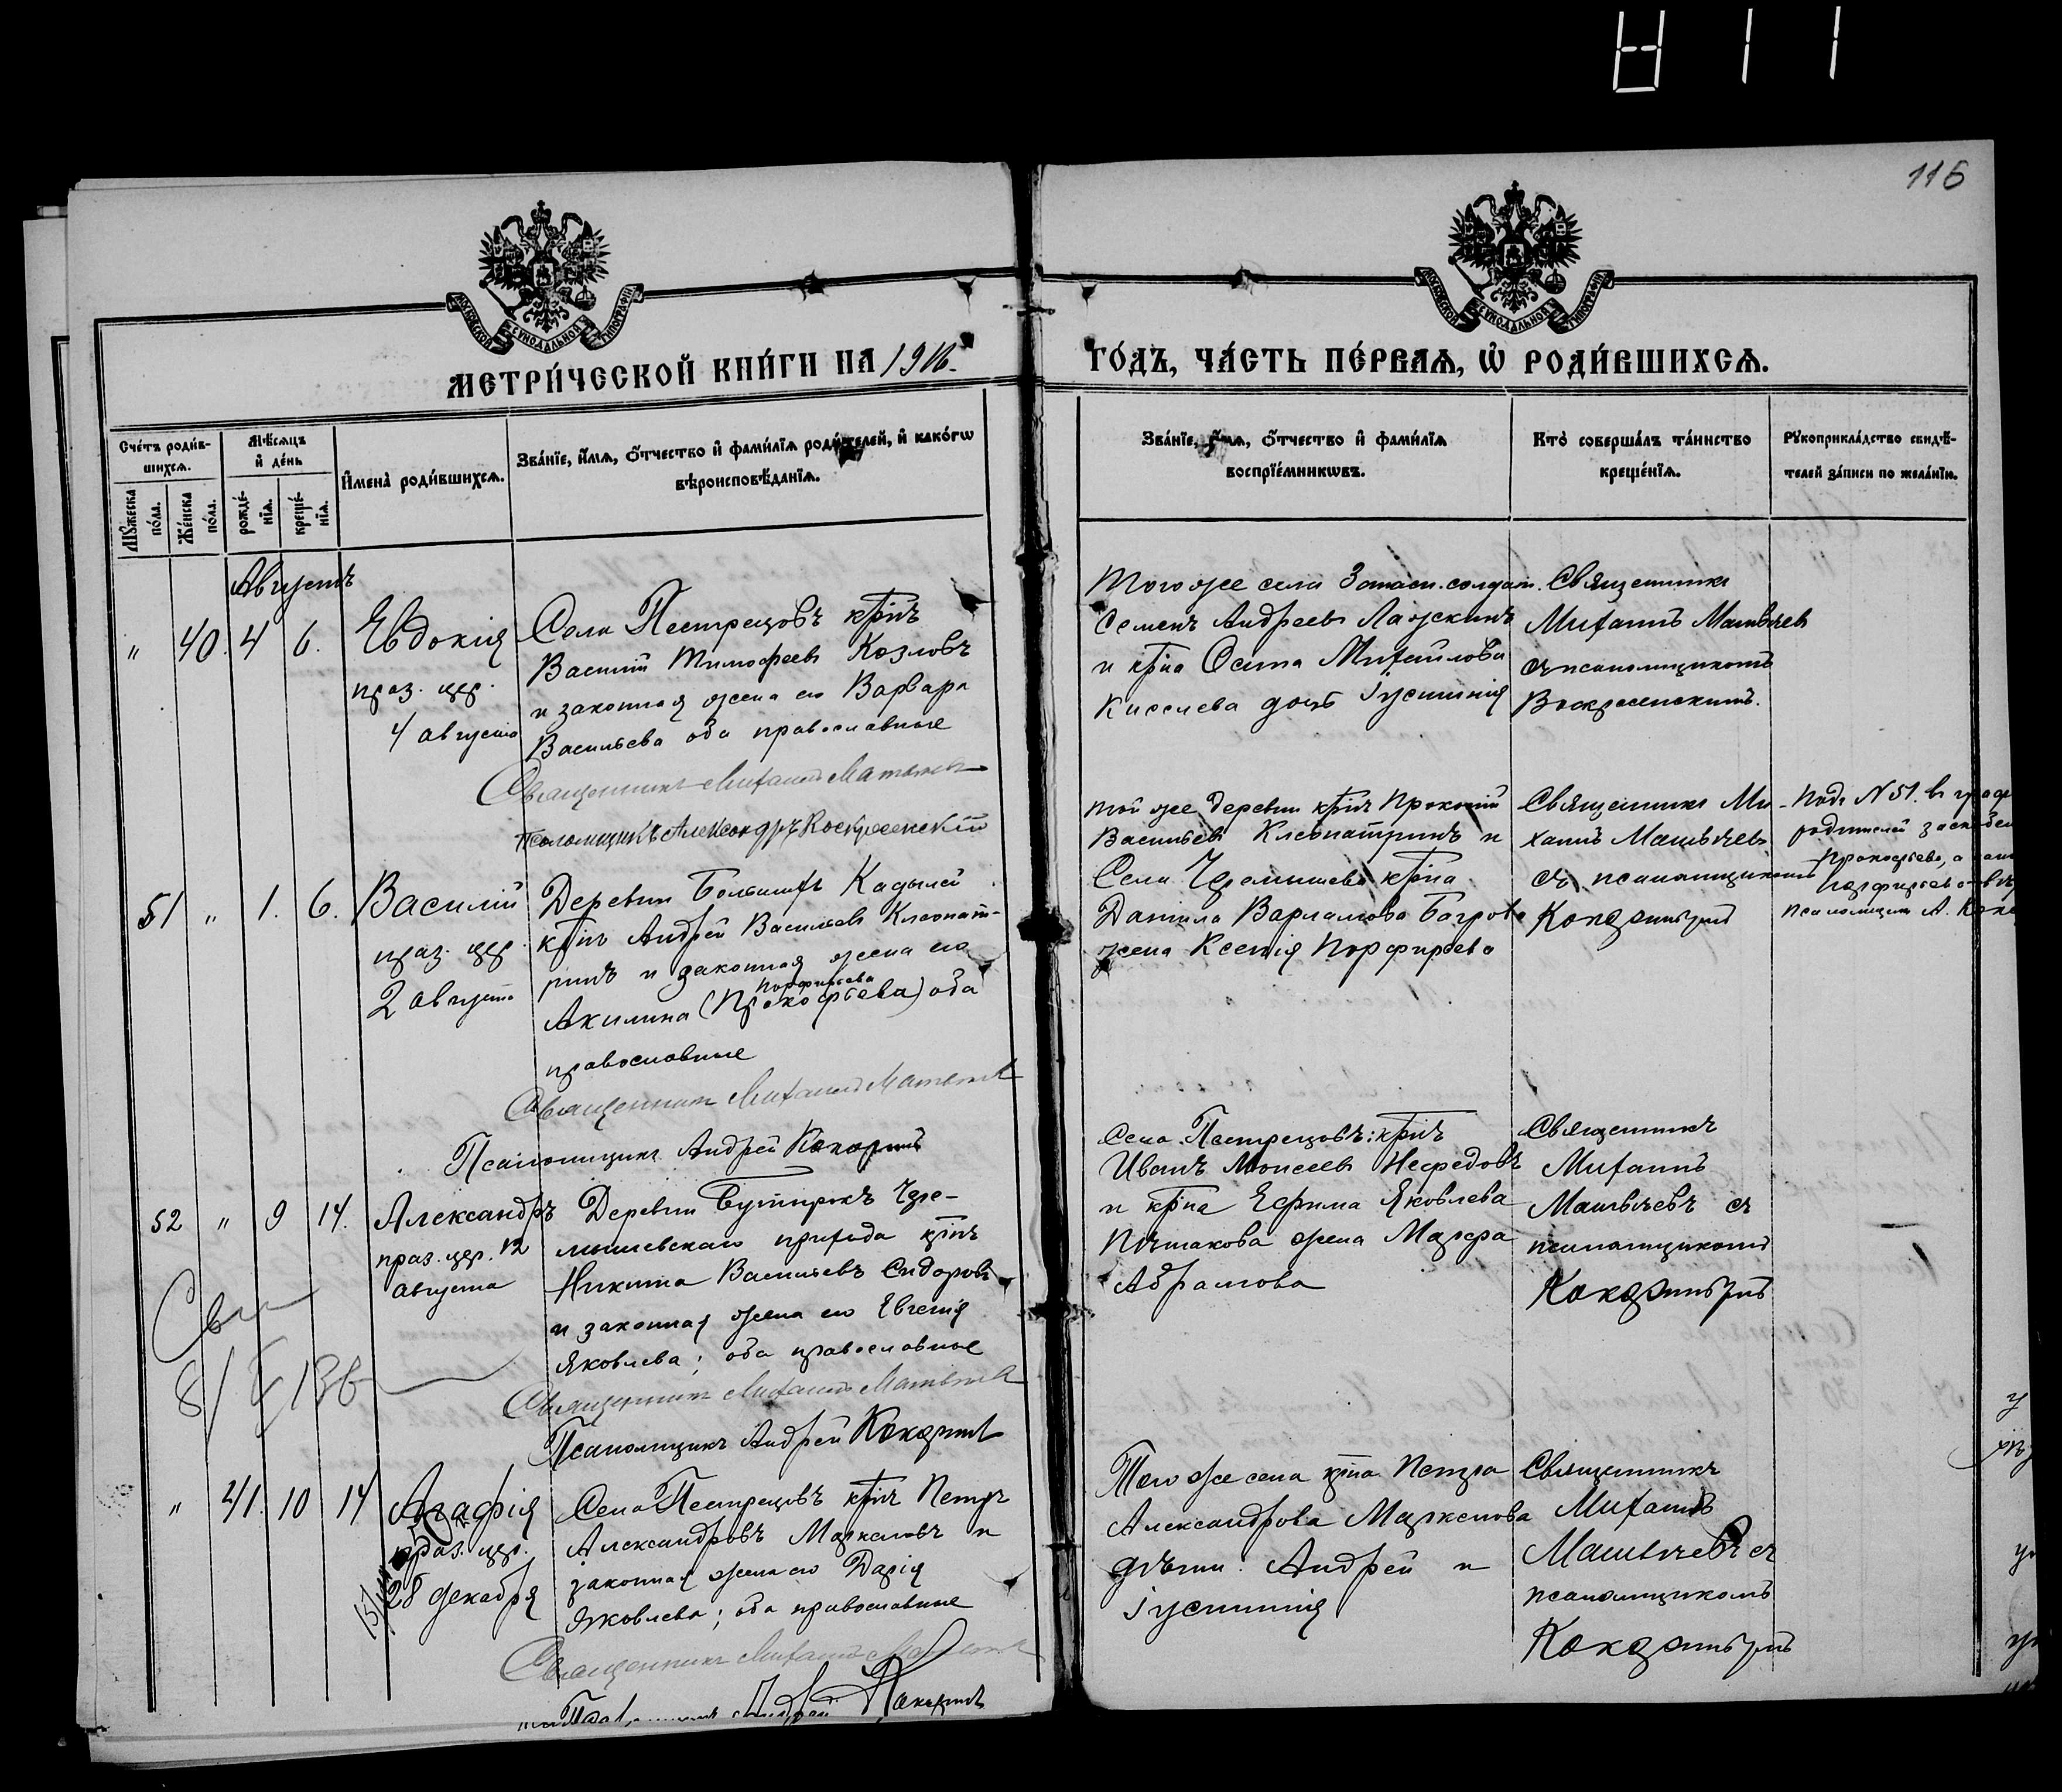 115
МОСКОВСКОЙ СѴНОДАЛЬНОЙ ТИПОГРАФІИ
МОСКОВСКОЙ СѴНОДАЛЬНОЙ ТИПОГРАФІИ
МЕТРИ́ЧЕСКОЙ КНИ́ГИ НА 1916.
ГО́ДЪ, ЧА́СТЬ ПЕ́РВАѦ, Ѡ҆ РОДИ́ВШИХСѦ.
Сче́тъ роди́в-
шихсѧ.
Мꙋ́жеска по́ла.
Же́нска по́ла.
Мѣ́сѧцъ
и҆ де́нь
рожде́-
нїѧ.
креще́-
нїѧ.
И҆мена̀ роди́вшихсѧ.
Зва́нїе, и҆́мѧ, ѻ҆́тчество и҆ фами́лїѧ роди́телей, и҆ како́гѡ
вѣроисповѣ́данїѧ.
Зва́нїе, и҆́мѧ, ѻ҆́тчество и҆ фами́лїѧ
воспрїе́мникѡвъ.
Кто̀ соверша́лъ та́инство
креще́нїѧ.
Рꙋкоприкла́дство свидѣ́-
телей за́писи по жела́нїю.
Августъ
" 40. 4 6.
Евдокія
праз. цер.
4 августа
Села Пестрецовъ кр–нъ
Василій Тимофеевъ Козловъ
и законная жена его Варвара
Васильева оба православные
Священникъ Михаилъ Матвѣевъ
Псаломщикъ Александръ Воскресенскій
Того же села Запасн. солдат.
Семенъ Андреевъ Лажскинъ
и кр–на Осипа Михайлова
Киселева дочь Іустинія
Священникъ
Михаилъ Матвѣевъ
съ псаломщикомъ
Воскресенскимъ.
51 " 1. 6.
Василій
праз. цер.
2 августа
Деревни Большихъ Кадылей
кр–нъ Андрей Васильевъ Клеопат-
ринъ и законная жена его
Порфирьева
Акилина (Прокофьева) оба
православные
Священникъ Михаилъ Матвѣевъ
Псаломщикъ Андрей Кокоринъ
той же деревни кр–нъ Прокопій
Васильевъ Клеопатринъ и
Села Черемышева кр–на
Данила Варламова Багрова
жена Ксенія Порфирьева
Священникъ Ми-
хаилъ Матвѣевъ
съ псаломщикомъ
Подъ N 51. въ граф
родителей
Прокофьева, а
Порфирьева
псаломщикъ А.
52 " 9 14.
Александръ
праз. цер. 12
августа
Деревни Бутырокъ Чере-
мышевскаго прихода кр–нъ
Никита Васильевъ Сидоровъ
и законная жена его Евгенія
Яковлева; оба православные
Священникъ Михаилъ Матвѣевъ
Псаломщикъ Андрей Кокоринъ
Села Пестрецовъ: кр–нъ
Иванъ Моисеевъ Нефедовъ
и кр–на Ефима Яковлева
жена Марфа
Абрамова
Священникъ
Михаилъ
Матвѣевъ съ
псаломщикомъ
" 41. 10 14
Агафія
праз. цер.
28 декабря
Села Пестрецовъ кр–нъ Петръ
Александровъ Маркеловъ и
законная жена его Дарія
Яковлева; оба православные
Священникъ Михаилъ
Того же села кр–на Петра
Александрова Маркелова
дѣти: Андрей и
Іустинія
Священникъ
Михаилъ
Матвѣевъ съ
псаломщикомъ